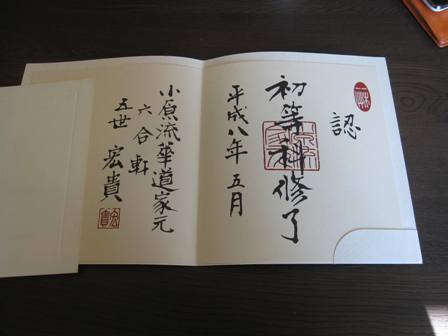 認
初等科修了
平成八年 五月
小原流華道家元
六合軒
五世 宏貴